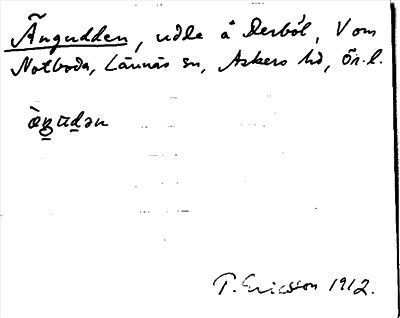 Ängudden, udde å Derböl, V om
Notboda, Lännäs sn, Askers hd, Ör. l.
T. Ericsson 1912.